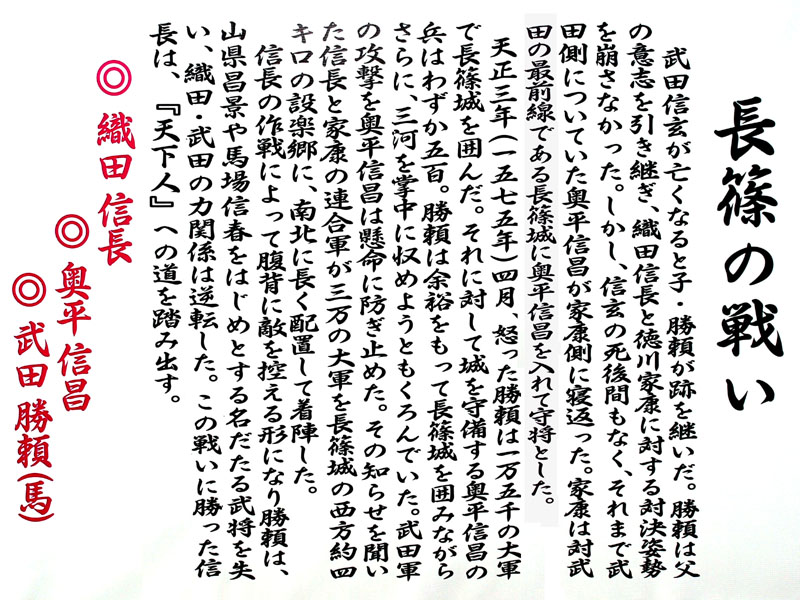 長篠の戦い
武田信玄が亡くなると子・勝頼が跡を継いだ。勝頼は父
の意志を引き継ぎ、織田信長と徳川家康に対する対決姿勢
を崩さなかった。しかし、信玄の死後間もなく、それまで武
田側についていた奥平信昌が家康側に寝返った。家康は対武
田の最前線である長篠城に奥平信昌を入れて守将とした。
天正三年(一五七五年)四月、怒った勝頼は一万五千の大軍
で長篠城を囲んだ。それに対して城を守備する奥平信昌の
兵はわずか五百。勝頼は余裕をもって長篠城を囲みながら
さらに、三河を掌中に収めようともくろんでいた。武田軍
の攻撃を奥平信昌は懸命に防ぎ止めた。その知らせを聞い
た信長と家康の連合軍が三万の大軍を長篠城の西方約四
キロの設楽郷に、南北に長く配置して着陣した。
信長の作戦によって腹背に敵を控える形になり勝頼は、
山県昌景や馬場信春をはじめとする名だたる武将を失
い、織田・武田の力関係は逆転した。この戦いに勝った信
長は、『天下人』への道を踏み出す。
◎ 織田 信長
◎ 奥平 信昌
◎ 武田 勝頼(馬)